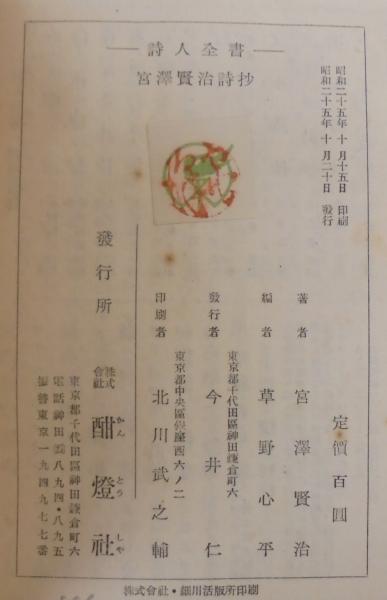 詩人全書
宮澤賢治詩抄
昭和二十五年十月十五日 印刷
昭和二十五年十月二十日 發行
定價百圓
著者 宮澤賢治
編者 草野心平
東京都千代田區神田鎌倉町六
發行者 今井仁
東京都中央區銀座西六ノ二
印刷者 北川武之輔
發行所
株式會社 酣燈社
かんとうしや
東京都千代田區神田鎌倉町六
電話神田 八九四・八九五
振替東京一九四九七七番
株式會社・細川活版所印刷